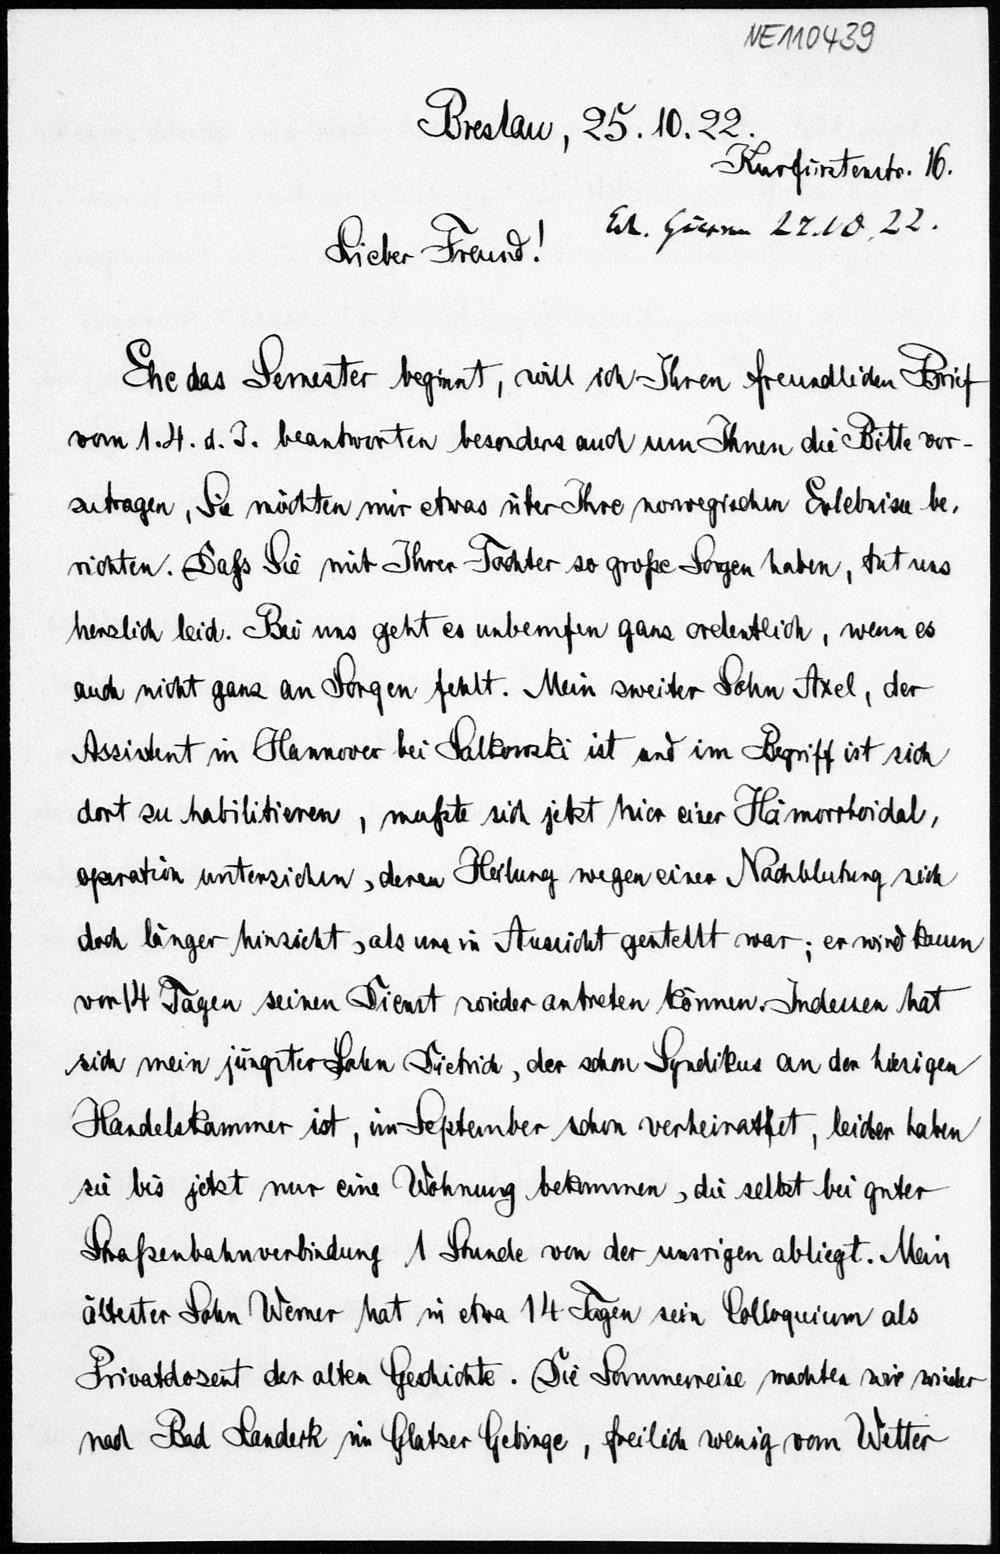 NE110439
Breslau, 25.10.22.
Kurfürstenstr. 16.
27.10.22.
Lieber Freund!
Ehe das Semester beginnt, will ich Ihren freundlichen Brief
vom 1.4. d. J. beantworten besonders auch um Ihnen die Bitte vor-
zutragen, Sie möchten mir etwas über Ihre norwegischen Erlebnisse be-
richten. Dafs Sie mit Ihrer Tochter so grofse Sorgen haben, tut uns
herzlich leid. Bei uns geht es unberufen ganz ordentlich, wenn es
auch nicht ganz an Sorgen fehlt. Mein zweiter Sohn Axel, der
Assistent in Hannover bei Salkowski ist und im Begriff ist sich
dort zu habilitieren, mufste sich jetzt hier einer Hämorrhoidal-
operation unterziehen, deren Heilung wegen einer Nachblutung sich
doch länger hinzieht, als uns in Aussicht gestellt war; er wird kaum
vor 14 Tagen seinen Dienst wieder antreten können. Indessen hat
sich mein jüngster Sohn Dietrich, der schon Syndikus an der hiesigen
Handelskammer ist, im September schon verheirathet, leider haben
sie bis jetzt nur eine Wohnung bekommen, die selbst bei guter
Strafsenbahnverbindung 1 Stunde von der unsrigen abliegt. Mein
ältester Sohn Werner hat in etwa 14 Tagen sein Colloquium als
Privatdozent der alten Geschichte. Die Sommerreise machten wir wieder
nach Bad Landeck im Glatzer Gebirge, freilich wenig vom Wetter